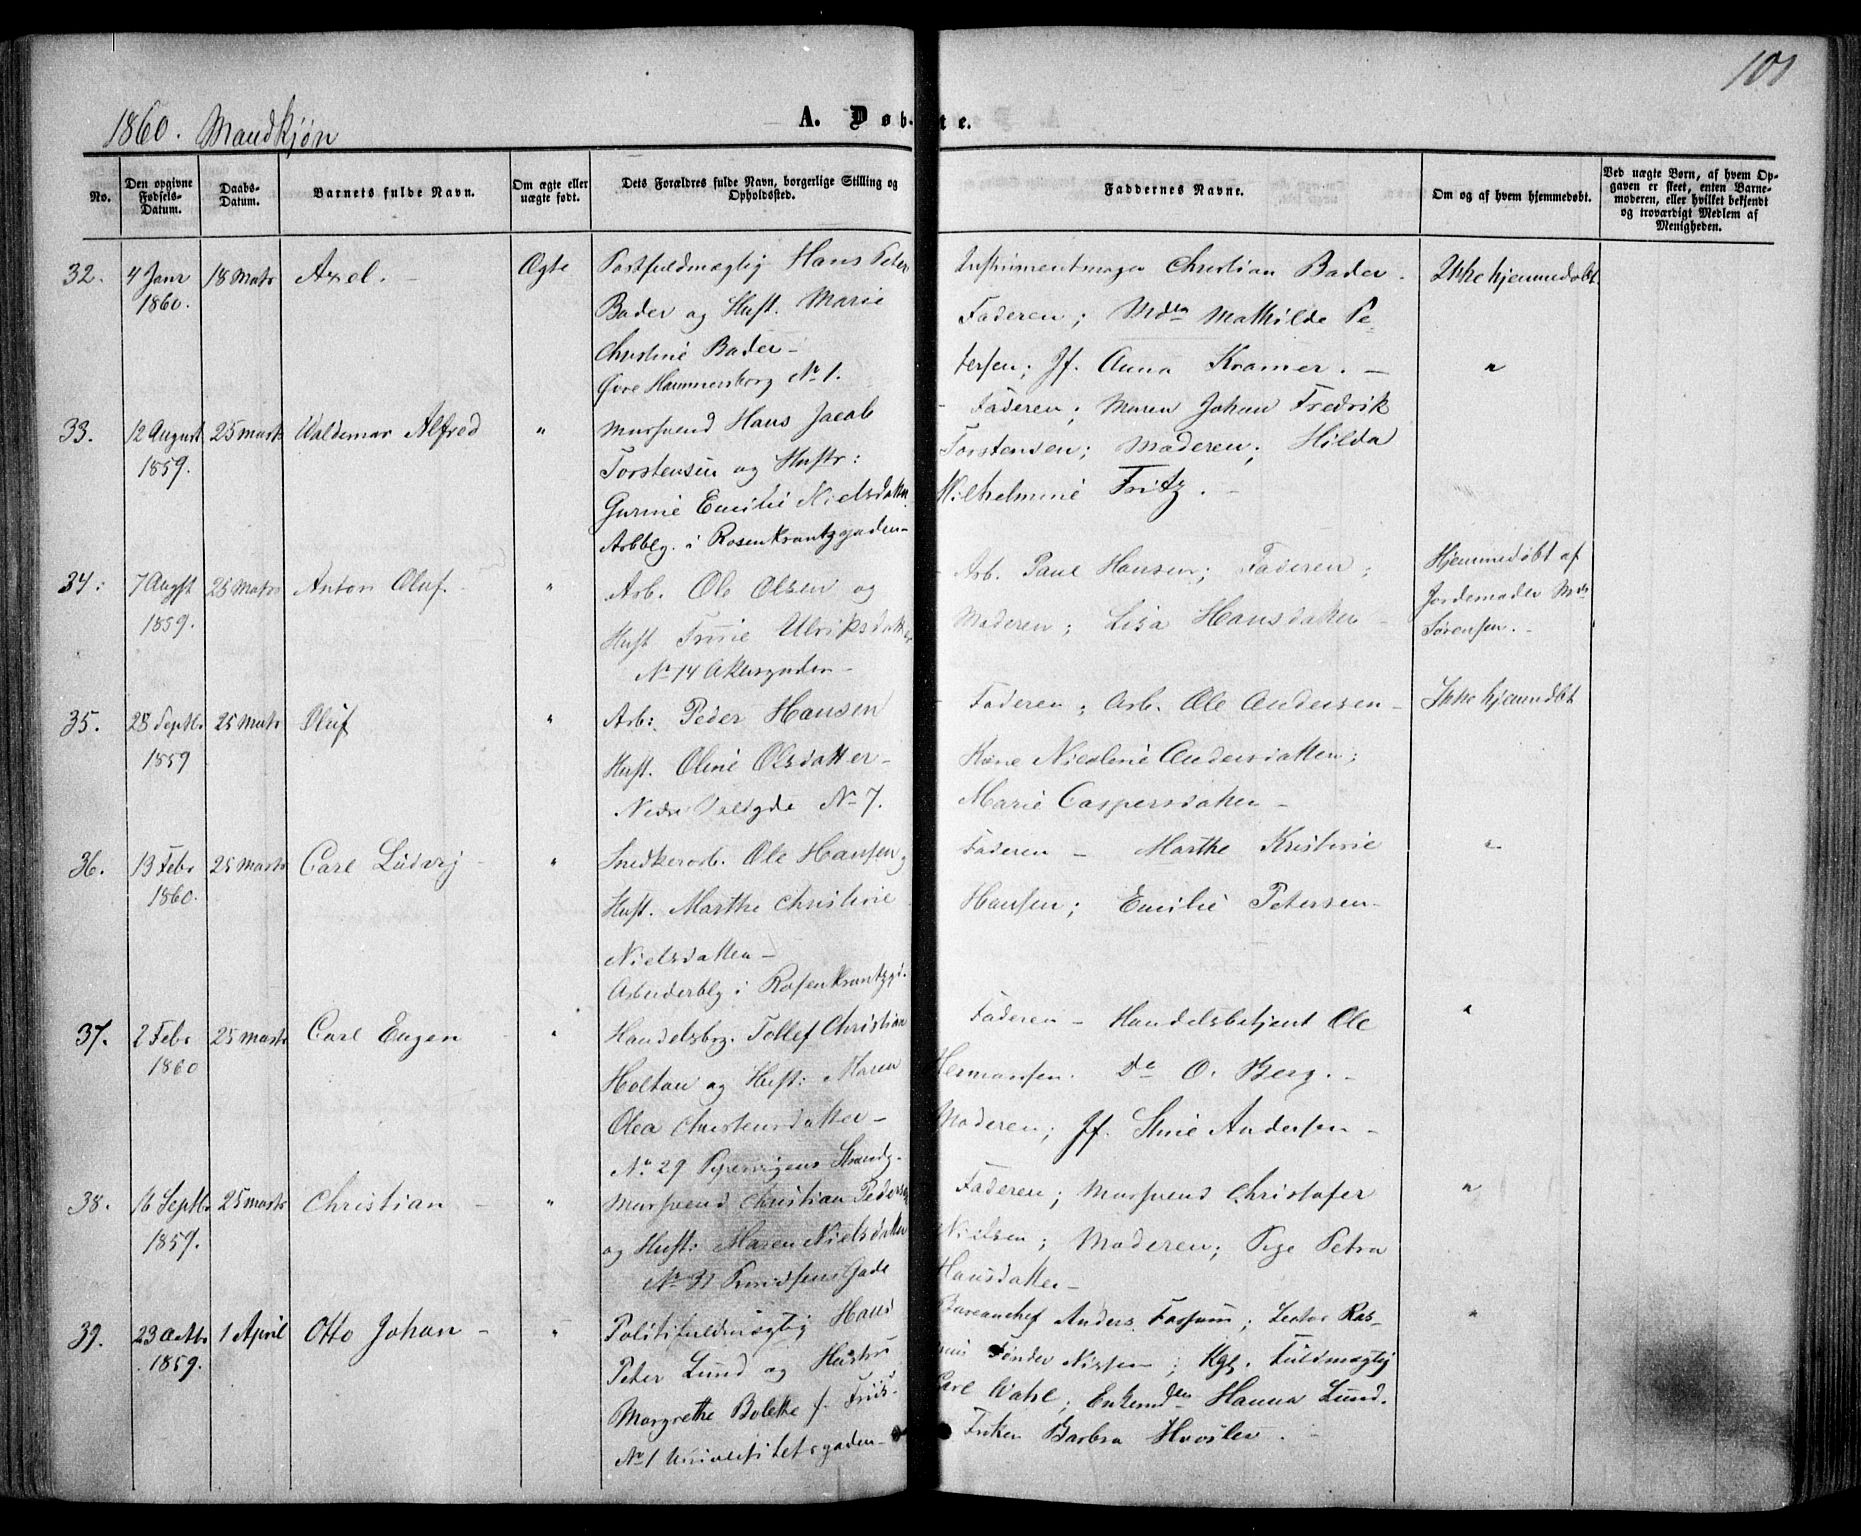 101
1860. Mandkjøn
A. Døbte.
No.
Den opgivne Fødsels-Datum.
Daabs-Datum.
Barnets fulde Navn.
Om ægte eller uægte født.
Dets Forældres fulde Navn, borgerlige Stilling og Opholdssted.
Faddernes Navne.
Om og af hvem hjemmedøbt.
Ved uægte Børn, af hvem Opgaven er skeet, enten Barnemoderen, eller hvilket bekjendt og troværdigt Medlem af Menigheden.
32. 4 Janr 1860. 18 Marts Axel. - Ægte
Postfuldmægtig Hans Peter
Bader og Hust. Marie
Christine Bader -
Øvre Hammersborg No 1.
Instrumentmager Christian Bader.
Faderen; Mdm Mathilde Pe-
tersen; Jf. Anna Kramer. -
Ikke hjemmedøbt
"
33. 12 August 1859. 25 Marts Waldemar Alfred "
Mursvend Hans Jacob
Torstensen og Hustr:
Gurine Emilie Nielsdatter
Arbblg. i Rosenkrantzgaden -
Faderen; Maren Johan Fredrik
Torstensen; Moderen; Hilda
Wilhelmine Fritz. -
34: 7 Augst 1859. 25 Marts Anton Oluf. - "
Arb. Ole Olsen og
Hust Trine Ulriksdatter
No 14 Akersgaden -
Arb. Paul Hansen; Faderen;
Moderen; Lisa Hansdatter -
Hjemmedøbt af
Jordemoder Mdm
Sørensen. -
35. 28 Septbr 1859 25 Marts Oluf "
Arb: Peder Hansen
Hust. Oline Olsdatter -
Nedre Voldgde No 7.
Faderen; Arb. Ole Andersen -
Kone Nicoline Andersdatter;
Marie Caspersdatter -
Ikke hjemmdøbt
36. 13 Febr 1860. 25 Marts Carl Ludvig - "
Snedkerarb. Ole Hansen og
Hust. Marthe Christine
Nielsdatter -
Arbeiderblg i Rosenkrantzgd.
Faderen - Marthe Kristine
Hansen; Emilie Petersen -
"
37. 2 Febr 1860 25 Marts Carl Eugen "
Handelsbg. Tollef Christian
Holtan og Hust: Maren
Olea Christensdatter -
No 29 Pipervigens Strandg.
Faderen - Handelsbetjent Ole
Hermansen. Do O. Berg. -
Moderen; Jf. Stine Andersen -
"
38. 16 Septbr 1859. 25 Marts Christian - "
Mursvend Christian Pedersen
og Hust: Maren Nielsdatter
No 31 Gade
Faderen; Mursvend Christofer
Nielsen; Moderen; Pige Petra
Hansdatter -
"
39. 23 Octbr 1859. 1 April Otto Johan - "
Politifuldmægtig Hans
Peter Lund og Hustru
Margrethe Bolette f. Friis -
No 1 Universitetsgaden -
Bureauchef Anders Fossum; Lector Ras-
Tønder Nissen; Kgl. Fuldmægtig
Carl Wahl; Enkemdm Hanna Lund.
Frøken Barbra -
"